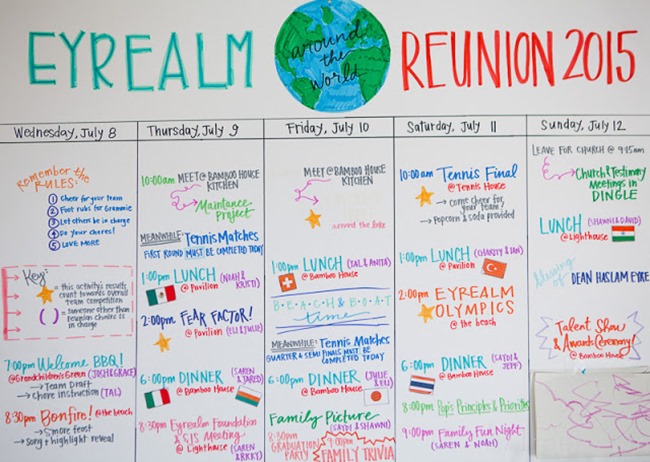 EYREALM
around
the
world
REUNION 2015
Wednesday, July 8
Remember the
RULES:
1 Cheer for your team
2 Foot rubs for Grammie
3 Let others be in charge
4 Do your chores!
5 LOVE MORE
Key:
= this activity's results
count towards overall
team competition
( ) = someone other than
reunion chairs is
in charge
7:00pm Welcome BBQ!
@Grandchildren's Green (JOSH&GRACE)
→ Team Draft
→ Chore instruction (TAL)
8:30pm Bonfire! @ the beach
→ S'more feast
→ Song & highlight reveal
Thursday, July 9
10:00am MEET@BAMBOO HOUSE
KITCHEN
Maintance
Project
MEANWHILE: Tennis Matches
FIRST ROUND MUST BE COMPLETED TODAY
1:00pm LUNCH (NOAH &
@ Pavilion KRISTI)
2:00pm FEAR FACTOR!
@ Pavilion (ELI & JULIE)
6:00pm DINNER (SAREN
@ Bamboo House & JARED)
8:30pm Eyrealm Foundation
& SJS Meeting
@ Lighthouse (SAREN
& RKKY)
Friday, July 10
MEET@BAMBOO HOUSE
KITCHEN
around the lake
1:00pm LUNCH (TAL & ANITA)
@ Bamboo House
BEACH & BOAT
time
MEANWHILE: Tennis Matches
QUARTER & SEMI FINALS MUST BE
COMPLETED TODAY
6:00pm DINNER (JULIE
@ Bamboo House & ELI)
Family Picture
(SAYDI & SHAWNI)
8:30pm
GRADUATION
PARTY
9:00pm
FAMILY TRIVIA
Saturday, July 11
10:00am Tennis Final
@ Tennis House
→ come cheer for
your team!
→ Popcorn & soda provided
1:00pm LUNCH (CHARITY & IAN)
@ Pavilion
2:00pm EYREALM
OLYMPICS
@ the beach
6:00pm DINNER (SAYDI &
@ Bamboo House JEFF)
8:00pm Pop's Principles & Priorities
9:00pm Family Fun Night
(SAREN & NOAH)
Sunday, July 12
LEAVE FOR CHURCH @ 9:15am
Church & Testimony
Meetings in
DINGLE
LUNCH (SHAWNI & DAVID)
@ Lighthouse
Blessing of
DEAN HASLAM EYRE
Talent Show
& Awards Ceremony!
@ Bamboo House